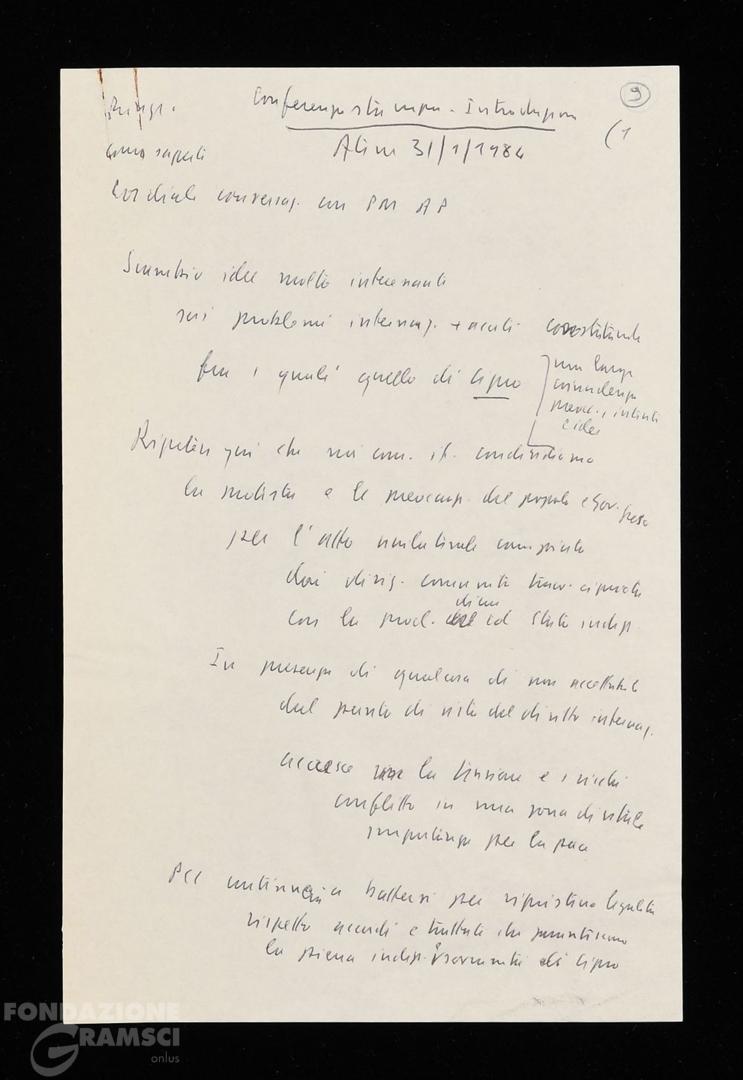 9
Conferenza stampa - Introduzion
(1
Ringr.
Atene 31/1/1984
come sapete
Cordiale conversaz. con PM AP
Scambio idee molto interessanti
sui problemi internaz. + acuti constatando
fra i quali quello di Cipro
una larga
coincidenza
preocc., intenti
e idee
Ripeterò qui che noi com. it. condividiamo
la protesta e le preoccup. del popolo e gov. greco
per l'atto unilaterale compiuto
dai dirig. comunità turco-cipriota
con la procl. di un cd Stato indip.
In presenza di qualcosa di non accettabile
dal punto di vista del diritto internaz.
accresce la tensione e i rischi
conflitto in una zona di vitale
importanza per la pace
PCI continuerà a battersi per ripristino legalità
rispetto accordi e trattati che garantiscono
la piena indip. e sovranità di Cipro
FONDAZIONE
GRAMSCI
onlus